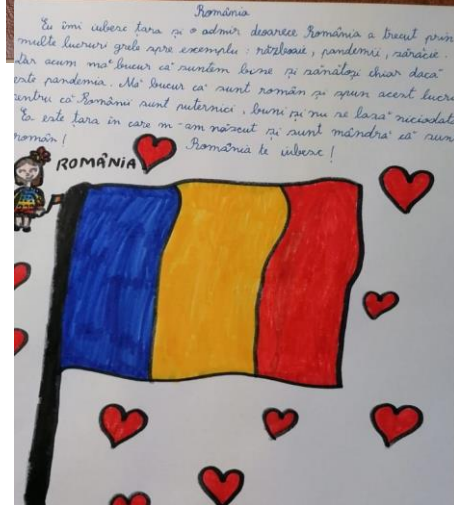 România
Eu îmi iubesc țara și o admir deoarece România a trecut prin
multe lucruri grele spre exemplu : războaie, pandemii, sărăcie.
Dar acum mă bucur că suntem bine și sănătoși chiar dacă
este pandemia. Mă bucur că sunt român și spun acest lucru
pentru că Românii sunt puternici, buni și nu se lasă niciodată
Ea este țara în care m-am născut și sunt mândră că sunt
român!
România te iubesc!
ROMÂNIA